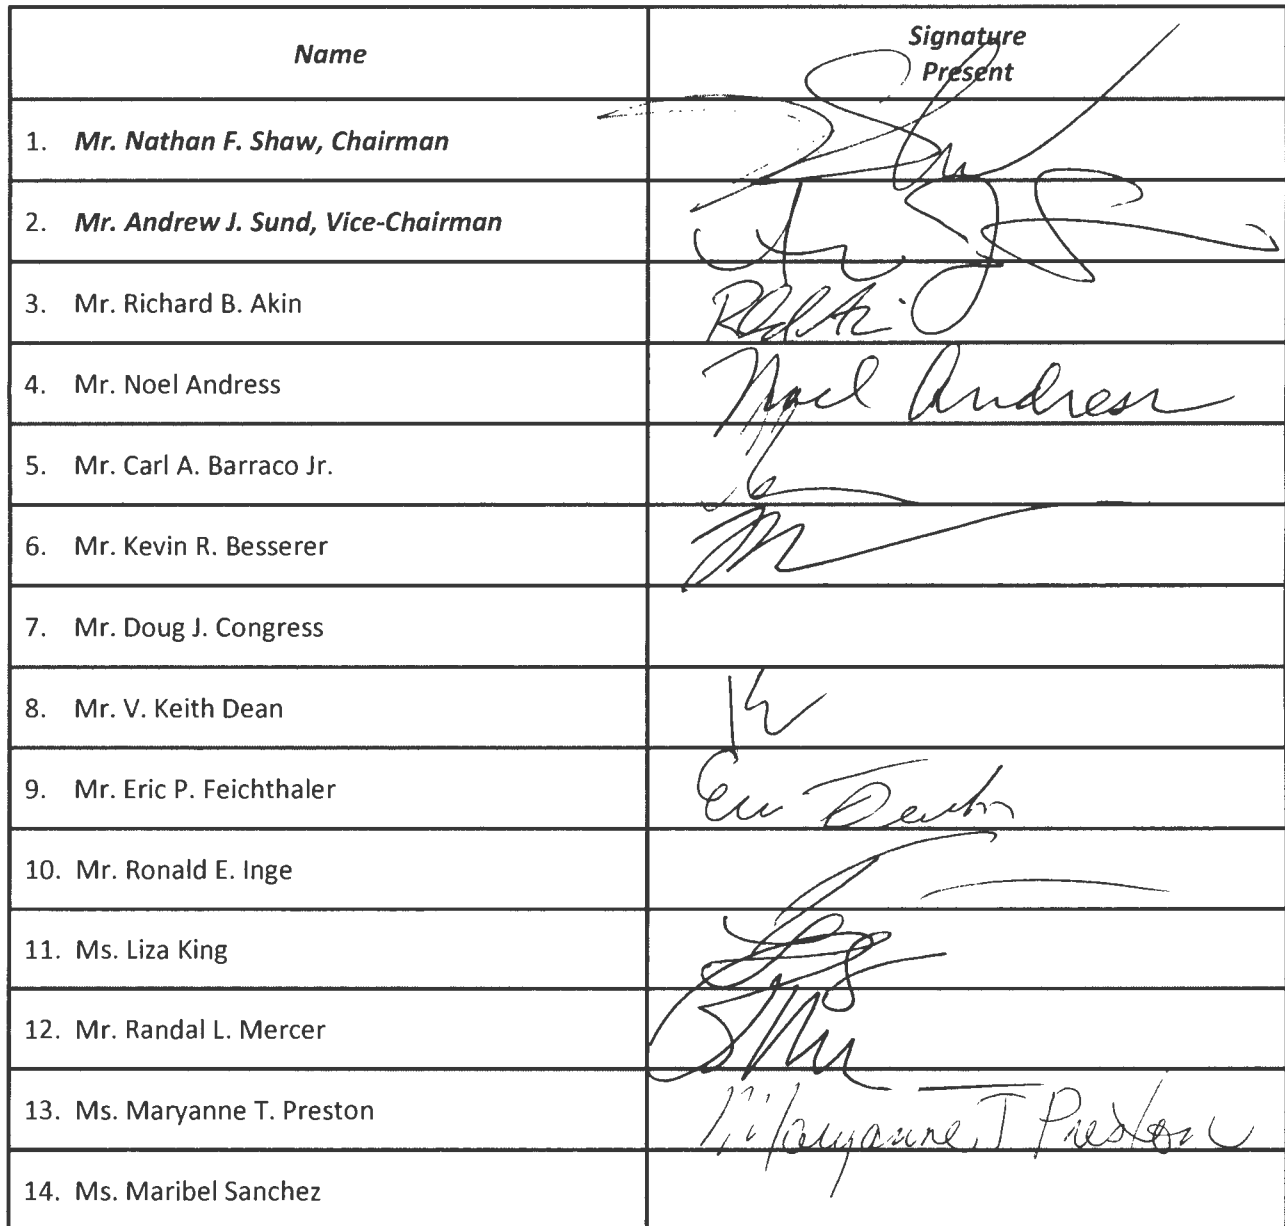 Name
Signature
Present
1. Mr. Nathan F. Shaw, Chairman
2. Mr. Andrew J. Sund, Vice-Chairman
3. Mr. Richard B. Akin
4. Mr. Noel Andress
Noel Andress
5. Mr. Carl A. Barraco Jr.
6. Mr. Kevin R. Besserer
7. Mr. Doug J. Congress
8. Mr. V. Keith Dean
9. Mr. Eric P. Feichthaler
10. Mr. Ronald E. Inge
11. Ms. Liza King
12. Mr. Randal L. Mercer
13. Ms. Maryanne T. Preston
Maryanne T Preston
14. Ms. Maribel Sanchez